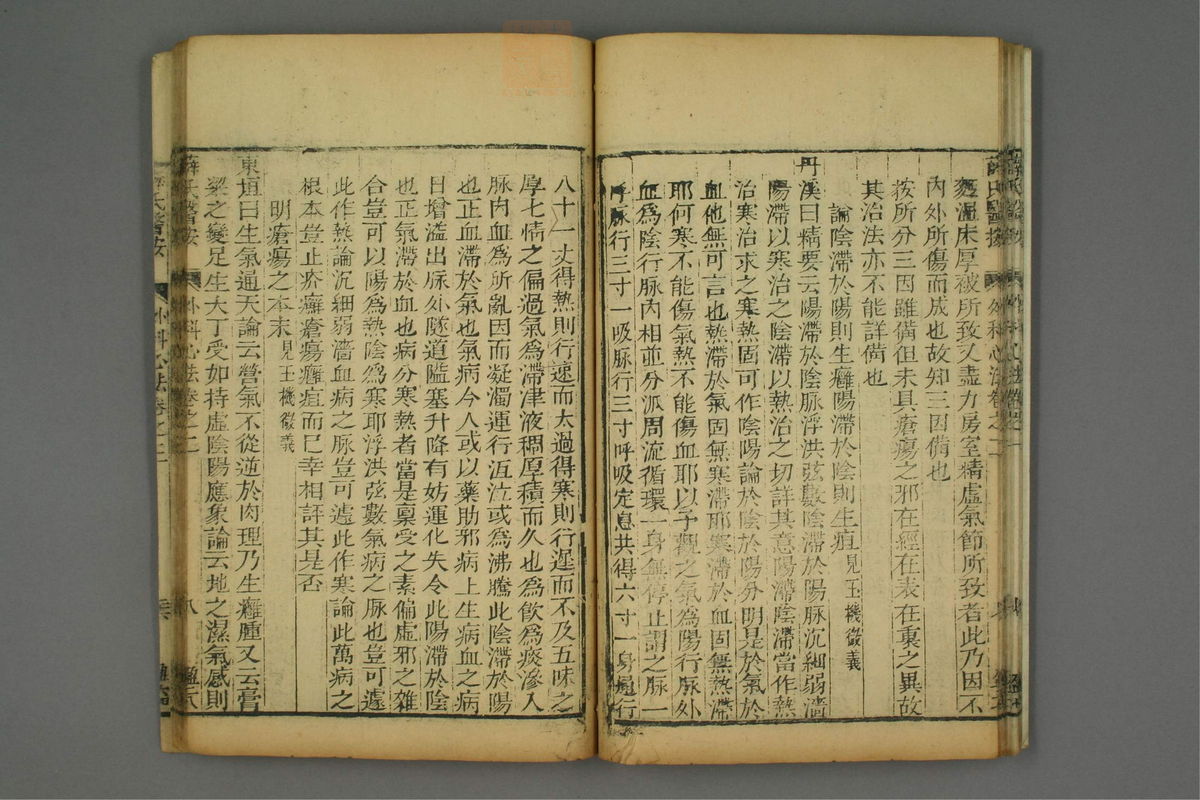 薛氏醫按 外科心法卷之二
寒濕床厚被所致又盡力房室精虛氣節所致者此乃因不
內外所傷而成也故知三因備也
按所分三因雖備但未具瘡瘍之邪在經在表在裏之異故
其治法亦不能詳備也
論陰滯於陽則生癰陽滯於陰則生疽見玉機微義
丹溪曰精要云陽滯於陰脉浮洪弦數陰滯於陽脉沉細弱濇
陽滯以寒治之陰滯以熱治之切詳其意陽滯陰滯當作熱
治寒治求之寒熱固可作陰陽論於陰於陽分明是於氣於
血他無可言也熱滯於氣固無寒滯耶寒滯於血固無熱滯
耶何寒不能傷氣熱不能傷血耶以予觀之氣為陽行脉外
血為陰行脉內相並分派周流循環一身無停止謂之脉一
呼脉行三寸一吸脉行三寸呼吸定息共得六寸一身通行
八十一丈得熱則行速而太過得寒則行遲而不及五味之
厚七情之偏過氣為滯津液稠厚積而久也為飲為痰滲入
脉內血為所亂因而凝濁運行冱泣或為沸騰此陰滯於陽
也正血滯於氣也氣病今人或以藥助邪病上生病血之病
日增溢出脉外隧道隘塞升降有妨運化失令此陽滯於陰
也正氣滯於血也病分寒熱者當是稟受之素偏虛邪之雜
合豈可以陽為熱陰為寒耶浮洪弦數氣病之脉也豈可遽
此作熱論沉細弱濇血病之脉豈可遽此作寒論此萬病之
根本豈止疥癬瘡瘍癰疽而已幸相評其是否
明瘡瘍之本末見玉機微義
東垣曰生氣通天論云營氣不從逆於肉理乃生癰腫又云膏
粱之變足生大丁受如持虛陰陽應象論云地之濕氣感則
薛氏醫按 外科心法卷之二 八